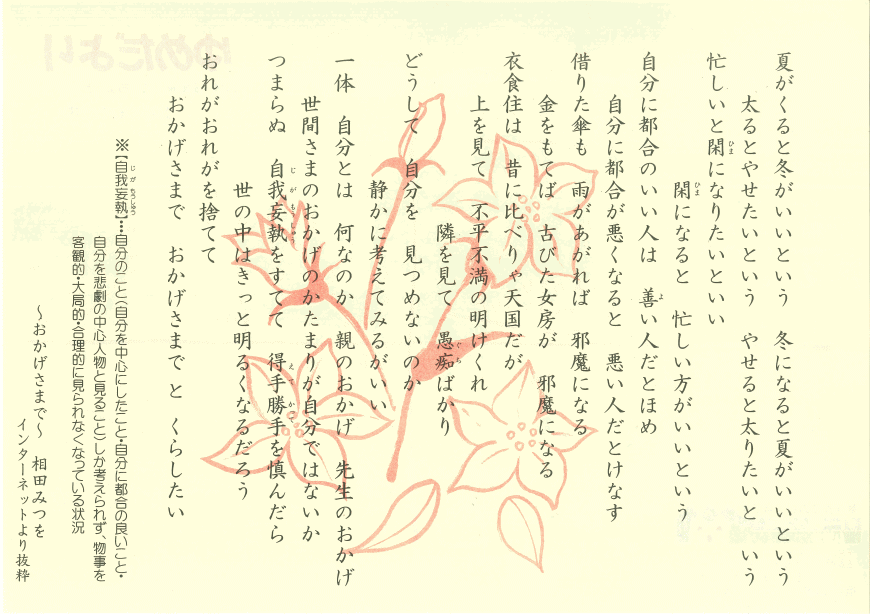 夏がくると冬がいいという　冬になると夏がいいという
太るとやせたいという　やせると太りたいと　いう
忙しいと閑になりたいといい
閑になると　忙しい方がいいという
自分に都合のいい人は　善い人だとほめ
自分に都合が悪くなると　悪い人だとけなす
借りた傘も　雨があがれば　邪魔になる
金をもてば　古びた女房が　邪魔になる
衣食住は　昔に比べりゃ天国だが
上を見て　不平不満の明けくれ
隣を見て　愚痴ばかり
どうして　自分を　見つめないのか
静かに考えてみるがいい
一体　自分とは　何なのか　親のおかげ　先生のおかげ
世間さまのおかげのかたまりが自分ではないか
つまらぬ　自我妄執をすてて　得手勝手を慎んだら
世の中はきっと明るくなるだろう
おれがおれがを捨てて
おかげさまで　おかげさまで　と　くらしたい
※【自我妄執】…自分のこと（自分を中心にしたこと・自分に都合の良いこと・
自分を悲劇の中心人物と見ること）しか考えられず、物事を
客観的・大局的・合理的に見られなくなっている状況
～おかげさまで～　相田みつを
インターネットより抜粋